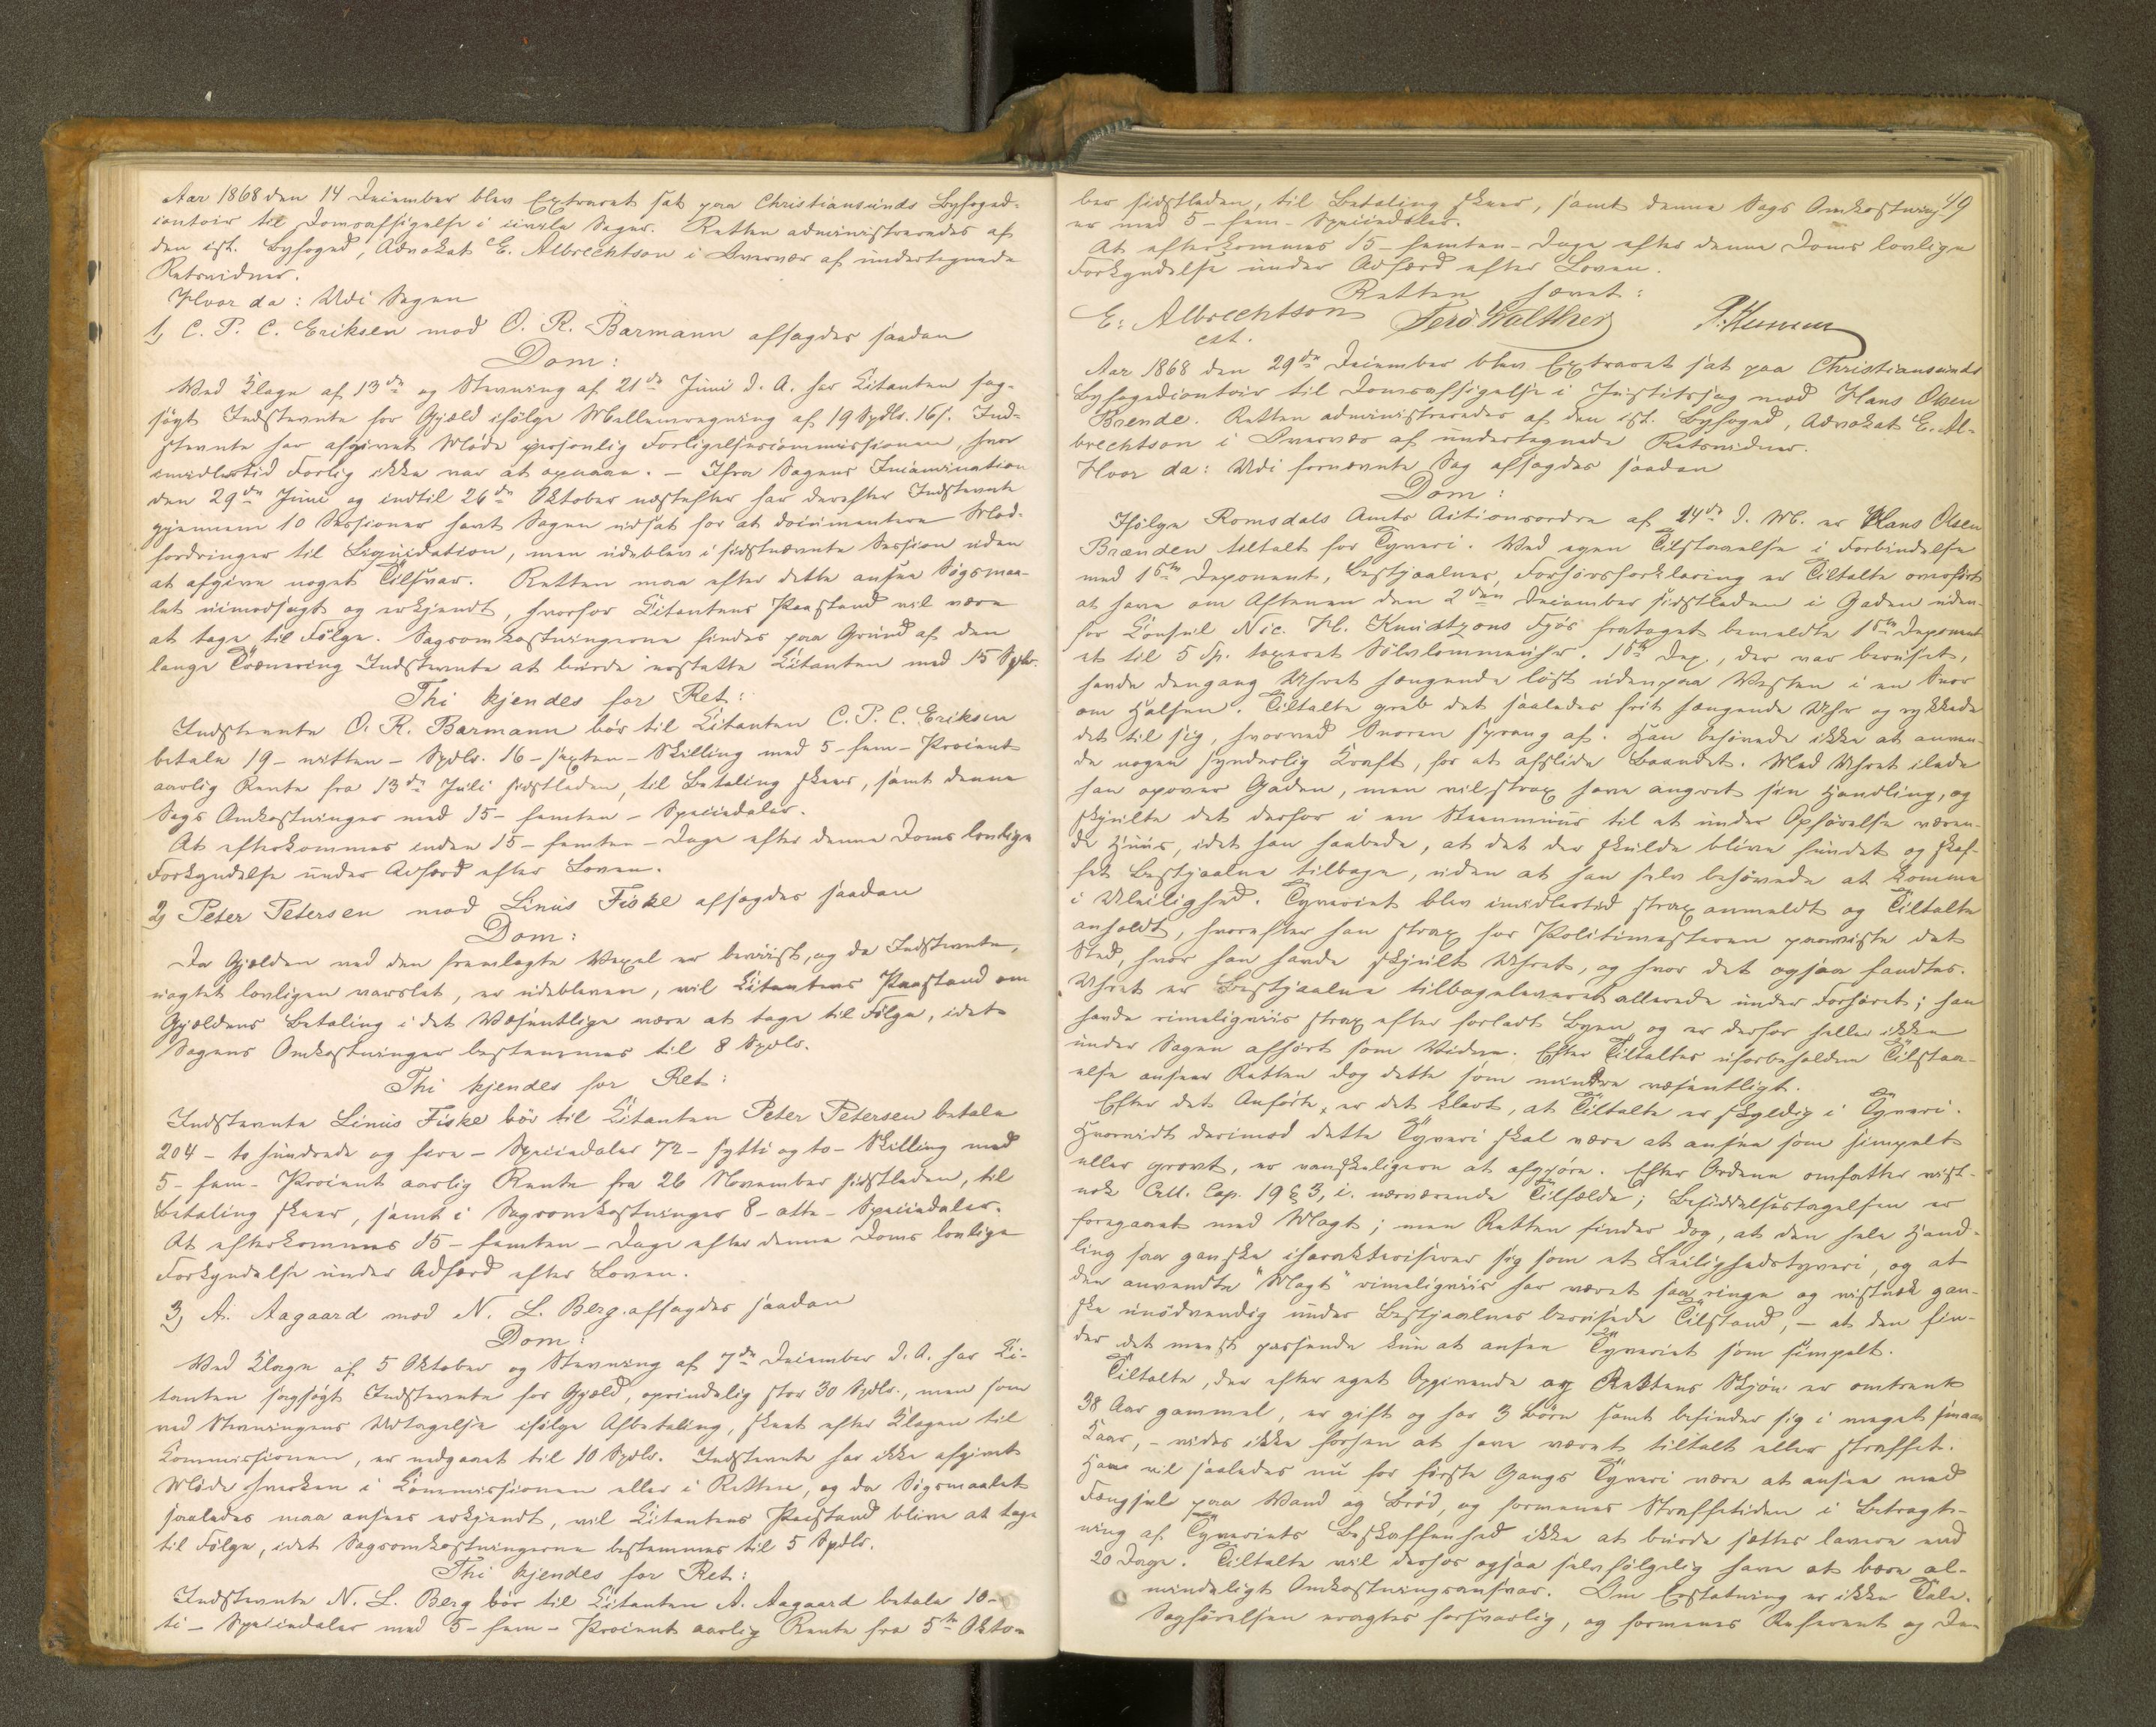 Aar 1868 den 14 December blev Extraret sat paa Christiansunds Byfoged-
contoir til Domsafsigelse i civile Sager. Retten administreredes af
den cst. Byfoged, Advokat E. Albrechtson i Overvær af undertegnede
Retsvidner.
Hvor da: Udi Sagen
1, C. P. C. Eriksen mod O. R. Barmann afsagdes saadan
Dom:
Ved Klage af 13de og Stevning af 21de Juni d. A. har Citanten sag-
søgt Indstevnte for Gjæld ifølge Mellemregning af 19 Spdlr. 16 s. Ind-
stevnte har afgivet Møde personlig Forligelsescommissionen, hvor
imidlertid Forlig ikke var at opnaae. – Ifra Sagens Incamination
den 29de Juni og indtil 26de Oktober næstefter har derefter Indstevnte
gjennem 10 Sessioner havt Sagen udsat for at documentere Mod-
fordringer til Liquidation, men udeblev i sidstnævnte Session uden
at afgive noget Tilsvar. Retten maa efter dette ansee Søgsmaa-
let uimodsagt og erkjendt, hvorfor Citantens Paastand vil være
at tage til Følge. Sagsomkostningerne findes paa Grund af den
lange Trænering Indstevnte at burde erstatte Citanten med 15 Spdlr.
Thi kjendes for Ret:
Indstevnte O. R. Barmann bør til Citanten C. P. C. Eriksen
betale 19 – nitten – Spdlr. 16 – sexten – Skilling med 5 – fem – Procent
aarlig Rente fra 13de Juli sidstleden, til Betaling skeer, samt denne
Sags Omkostninger med 15 – femten – Speciedaler.
At efterkommes inden 15 – femten – Dage efter denne Doms lovlige
Forkyndelse under Adfærd efter Loven.
2, Peter Petersen mod Linus Fiske afsagdes saadan
Dom:
Da Gjælden ved den fremlagte Vexel er beviist, og da Indstevnte,
uagtet lovligen varslet, er udebleven, vil Citantens Paastand om
Gjældens Betaling i det Væsentlige være at tage til Følge, idet
Sagens Omkostninger bestemmes til 8 Spdlr.
Thi kjendes for Ret:
Indstevnte Linus Fiske bør til Citanten Peter Petersen betale
204 – to hundrede og fire – Speciedaler 72 – sytti og to – Skilling med
5 – fem – Procent aarlig Rente fra 26 November sidstleden, til
Betaling skeer, samt i Sagsomkostninger 8 – otte – Speciedaler.
At efterkommes 15 – femten – Dage efter denne Doms lovlige
Forkyndelse under Adfærd efter Loven.
3, A. Aagaard mod N. L. Berg afsagdes saadan
Dom:
Ved Klage af 5 Oktober og Stevning af 7de December d. A. har Ci-
tanten sagsøgt Indstevnte for Gjæld, oprindelig stor 30 Spdlr., men som
ved Stevningens Udtagelse ifølge Afbetaling, skeet efter Klagen til
Commissionen, er nedgaaet til 10 Spdlr. Indstevnte har ikke afgivet
Møde hverken i Commissionen eller i Retten, og da Søgsmaalet
saaledes maa ansees erkjendt, vil Citantens Paastand blive at tage
til Følge, idet Sagsomkostningerne bestemmes til 5 Spdlr.
Thi kjendes for Ret:
Indstevnte N. L. Berg bør til Citanten A. Aagaard betale 10 –
ti – Speciedaler med 5 – fem – Procent aarlig Rente fra 5te Okto-
49
ber sidstleden, til Betaling skeer, samt denne Sags Omkostning-
er med 5 – fem – Speciedaler.
At efterkommes 15 – femten – Dage efter denne Doms lovlige
Forkyndelse under Adfærd efter Loven.
Retten hævet:
E. Albrechtson Ferd Walther
cst.
Aar 1868 den 29de December blev Extraret sat paa Christiansunds
Byfogedcontoir til Domsafsigelse i Justitssag mod Hans Olsen
Brende. Retten administreredes af den cst. Byfoged, Advokat E. Al-
brechtson i Overvær af undertegnede Retsvidner.
Hvor da: Udi fornævnte Sag afsagdes saadan
Dom:
Ifølge Romsdals Amts Actionsordre af 14de d. M. er Hans Olsen
Brænden tiltalt for Tyveri. Ved egen Tilstaaelse i Forbindelse
med 1ste Deponent, Bestjaalnes, Forhørsforklaring er Tiltalte overført
at have om Aftenen den 2den December sidstleden i Gaden uden-
for Consul Nic. H. Knudtzons Fjøs frataget bemeldte 1ste Deponent
et til 5 Sp. taxeret Sølvlommeuhr. 1ste Dep., der var beruset,
havde dengang Uhret hængende løst udenpaa Vesten i en Snor
om Halsen. Tiltalte greb det saaledes frit hængende Uhr og rykkede
det til sig, hvorved Snoren sprang af. Han behøvede ikke at anven-
de nogen synderlig Kraft, for at afslide Baandet. Med Uhret ilede
han opover Gaden, men vil strax have angret sin Handling, og
skjulte det derfor i en Steenmuur til et under Opførelse væren-
de Huus, idet han haabede, at det der skulde blive fundet og skaf-
fet Bestjaalne tilbage, uden at han selv behøvede at komme
i Uleilighed. Tyveriet blev imidlertid strax anmeldt og Tiltalte
anholdt, hvorefter han strax for Politimesteren paaviste det
Sted, hvor han havde skjult Uhret, og hvor det ogsaa fandtes.
Uhret er Bestjaalne tilbageleveret allerede under Forhøret; han
havde rimeligviis strax efter forladt Byen og er derfor heller ikke
under Sagen afhørt som Vidne. Efter Tiltaltes uforbeholdne Tilstaa-
else anseer Retten dog dette som mindre væsentligt.
Efter det Anførte, er det klart, at Tiltalte er skyldig i Tyveri.
Hvorvidt derimod dette Tyveri skal være at ansee som simpelt
eller grovt, er vanskeligere at afgjøre. Efter Ordene omfatter vist-
nok Crll. Cap. 19 § 3, i. nærværende Tilfælde; Besiddelsestagelsen er
foregaaet med Magt; men Retten finder dog, at den hele Hand-
ling saa ganske charakteriserer sig som et Leilighedstyveri, og at
den anvendte "Magt" rimeligviis har været saa ringe og vistnok gan-
ske unødvendig under Bestjaalnes berusede Tilstand, – at den fin-
der det meest passende kun at ansee Tyveriet som simpelt.
Tiltalte, der efter eget Opgivende og Rettens Skjøn er omtrent
38 Aar gammel, er gift og har 3 Børn samt befinder sig i meget smaa
Kaar, – vides ikke forhen at have været tiltalt eller straffet.
Han vil saaledes nu for første Gangs Tyveri være at ansee med
Fængsel paa Vand og Brød, og formenes Straffetiden i Betragt-
ning af Tyveriets Beskaffenhed ikke at burde sættes lavere end
20 Dage. Tiltalte vil derhos ogsaa selvfølgelig have at bære al-
mindeligt Omkostningsansvar. Om Erstatning er ikke Tale.
Sagførelsen eragtes forsvarlig, og formenes Referent og De-